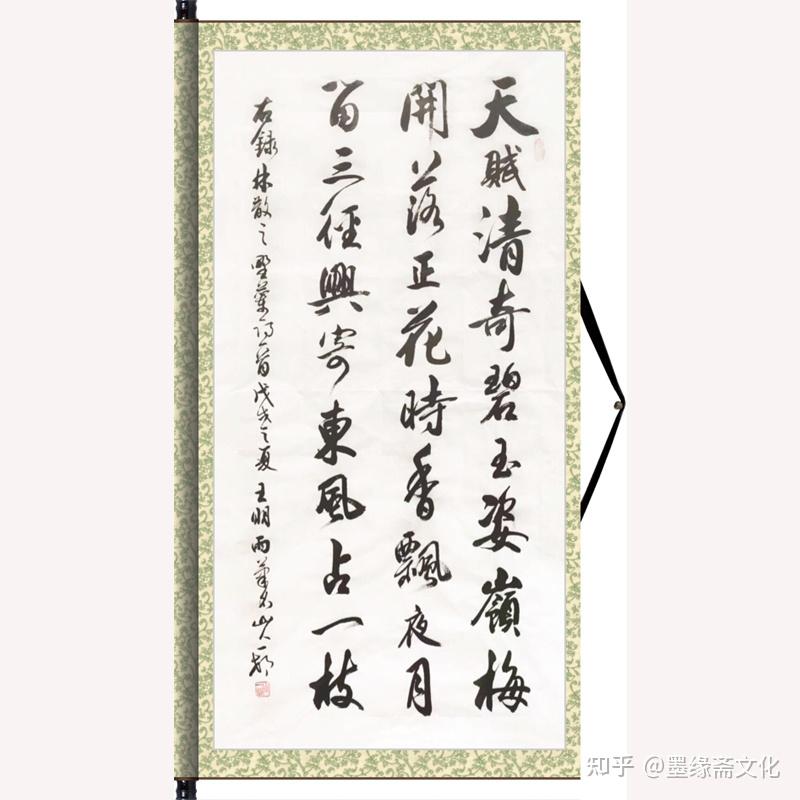 天賦清奇碧玉姿嶺梅
開落正花時香飄夜月
留三徑興寄東風占一枝
右録林散之墅葉诗一首戊戌之夏王明雨筆名山人邨
知乎 @墨缘斋文化